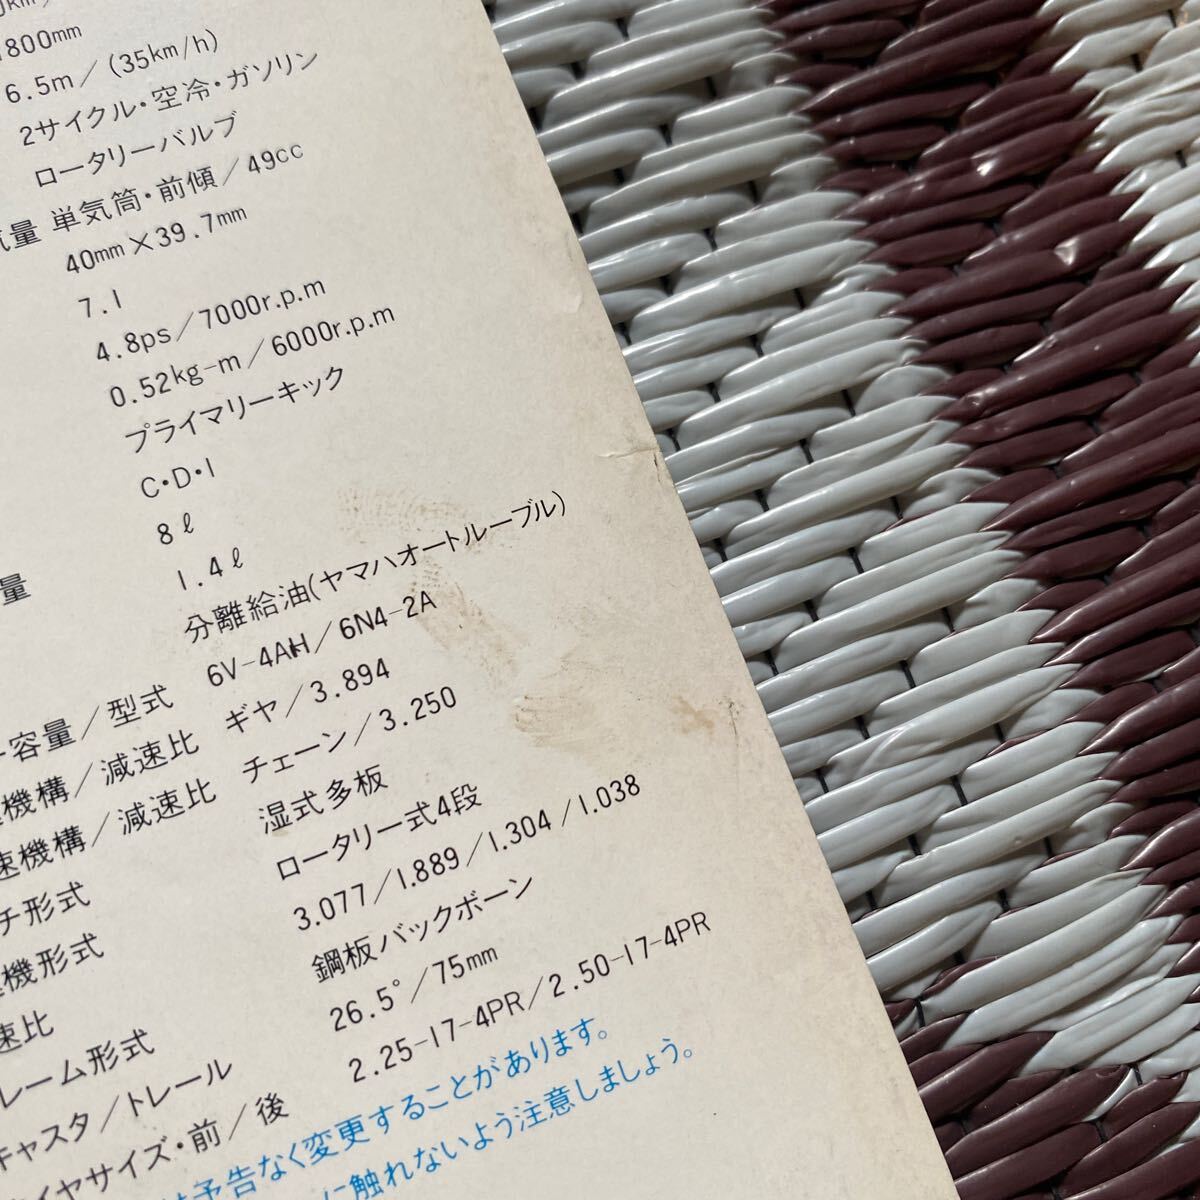 1800mm
6.5m/(35km/h)
2サイクル・空冷・ガソリン
ロータリーバルブ
気量 単気筒・前傾/49cc
40mm×39.7mm
7.1
4.8ps/7000r.p.m
0.52kg-m/6000r.p.m
プライマリーキック
C・D・I
8ℓ
量 1.4ℓ
分離給油(ヤマハオートルーブル)
容量/型式 6V-4AH/6N4-2A
機構/減速比 ギヤ/3.894
速機構/減速比 チェーン/3.250
チ形式 湿式多板
機形式 ロータリー式4段
速比 3.077/1.889/1.304/1.038
レーム形式 鋼板バックボーン
キャスタ/トレール 26.5°/75mm
イヤサイズ・前/後 2.25-17-4PR/2.50-17-4PR
予告なく変更することがあります。
に触れないよう注意しましょう。